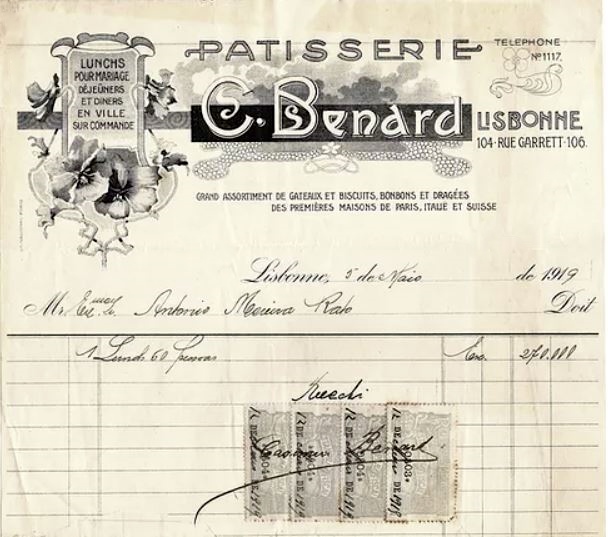 LUNCHS
POUR MARIAGE
DÉJEÛNERS
ET DINERS
EN VILLE
SUR COMMANDE
PATISSERIE
C. Benard
TELEPHONE
Nº 1117.
LISBONNE
104 · RUE GARRETT · 106.
GRAND ASSORTIMENT DE GATEAUX ET BISCUITS, BONBONS ET DRAGÉES
DES PREMIÈRES MAISONS DE PARIS, ITALIE ET SUISSE
Lisbonne, 5 de Maio de 1919
Mr. Antonio Moreira Rato Doit
1 Lunch 60 pessoas 270.000
Recebi
Casimiro Benard
12 DE DE 1919
12 DE DE 1919
12 DE DE 1919
12 DE DE 1919